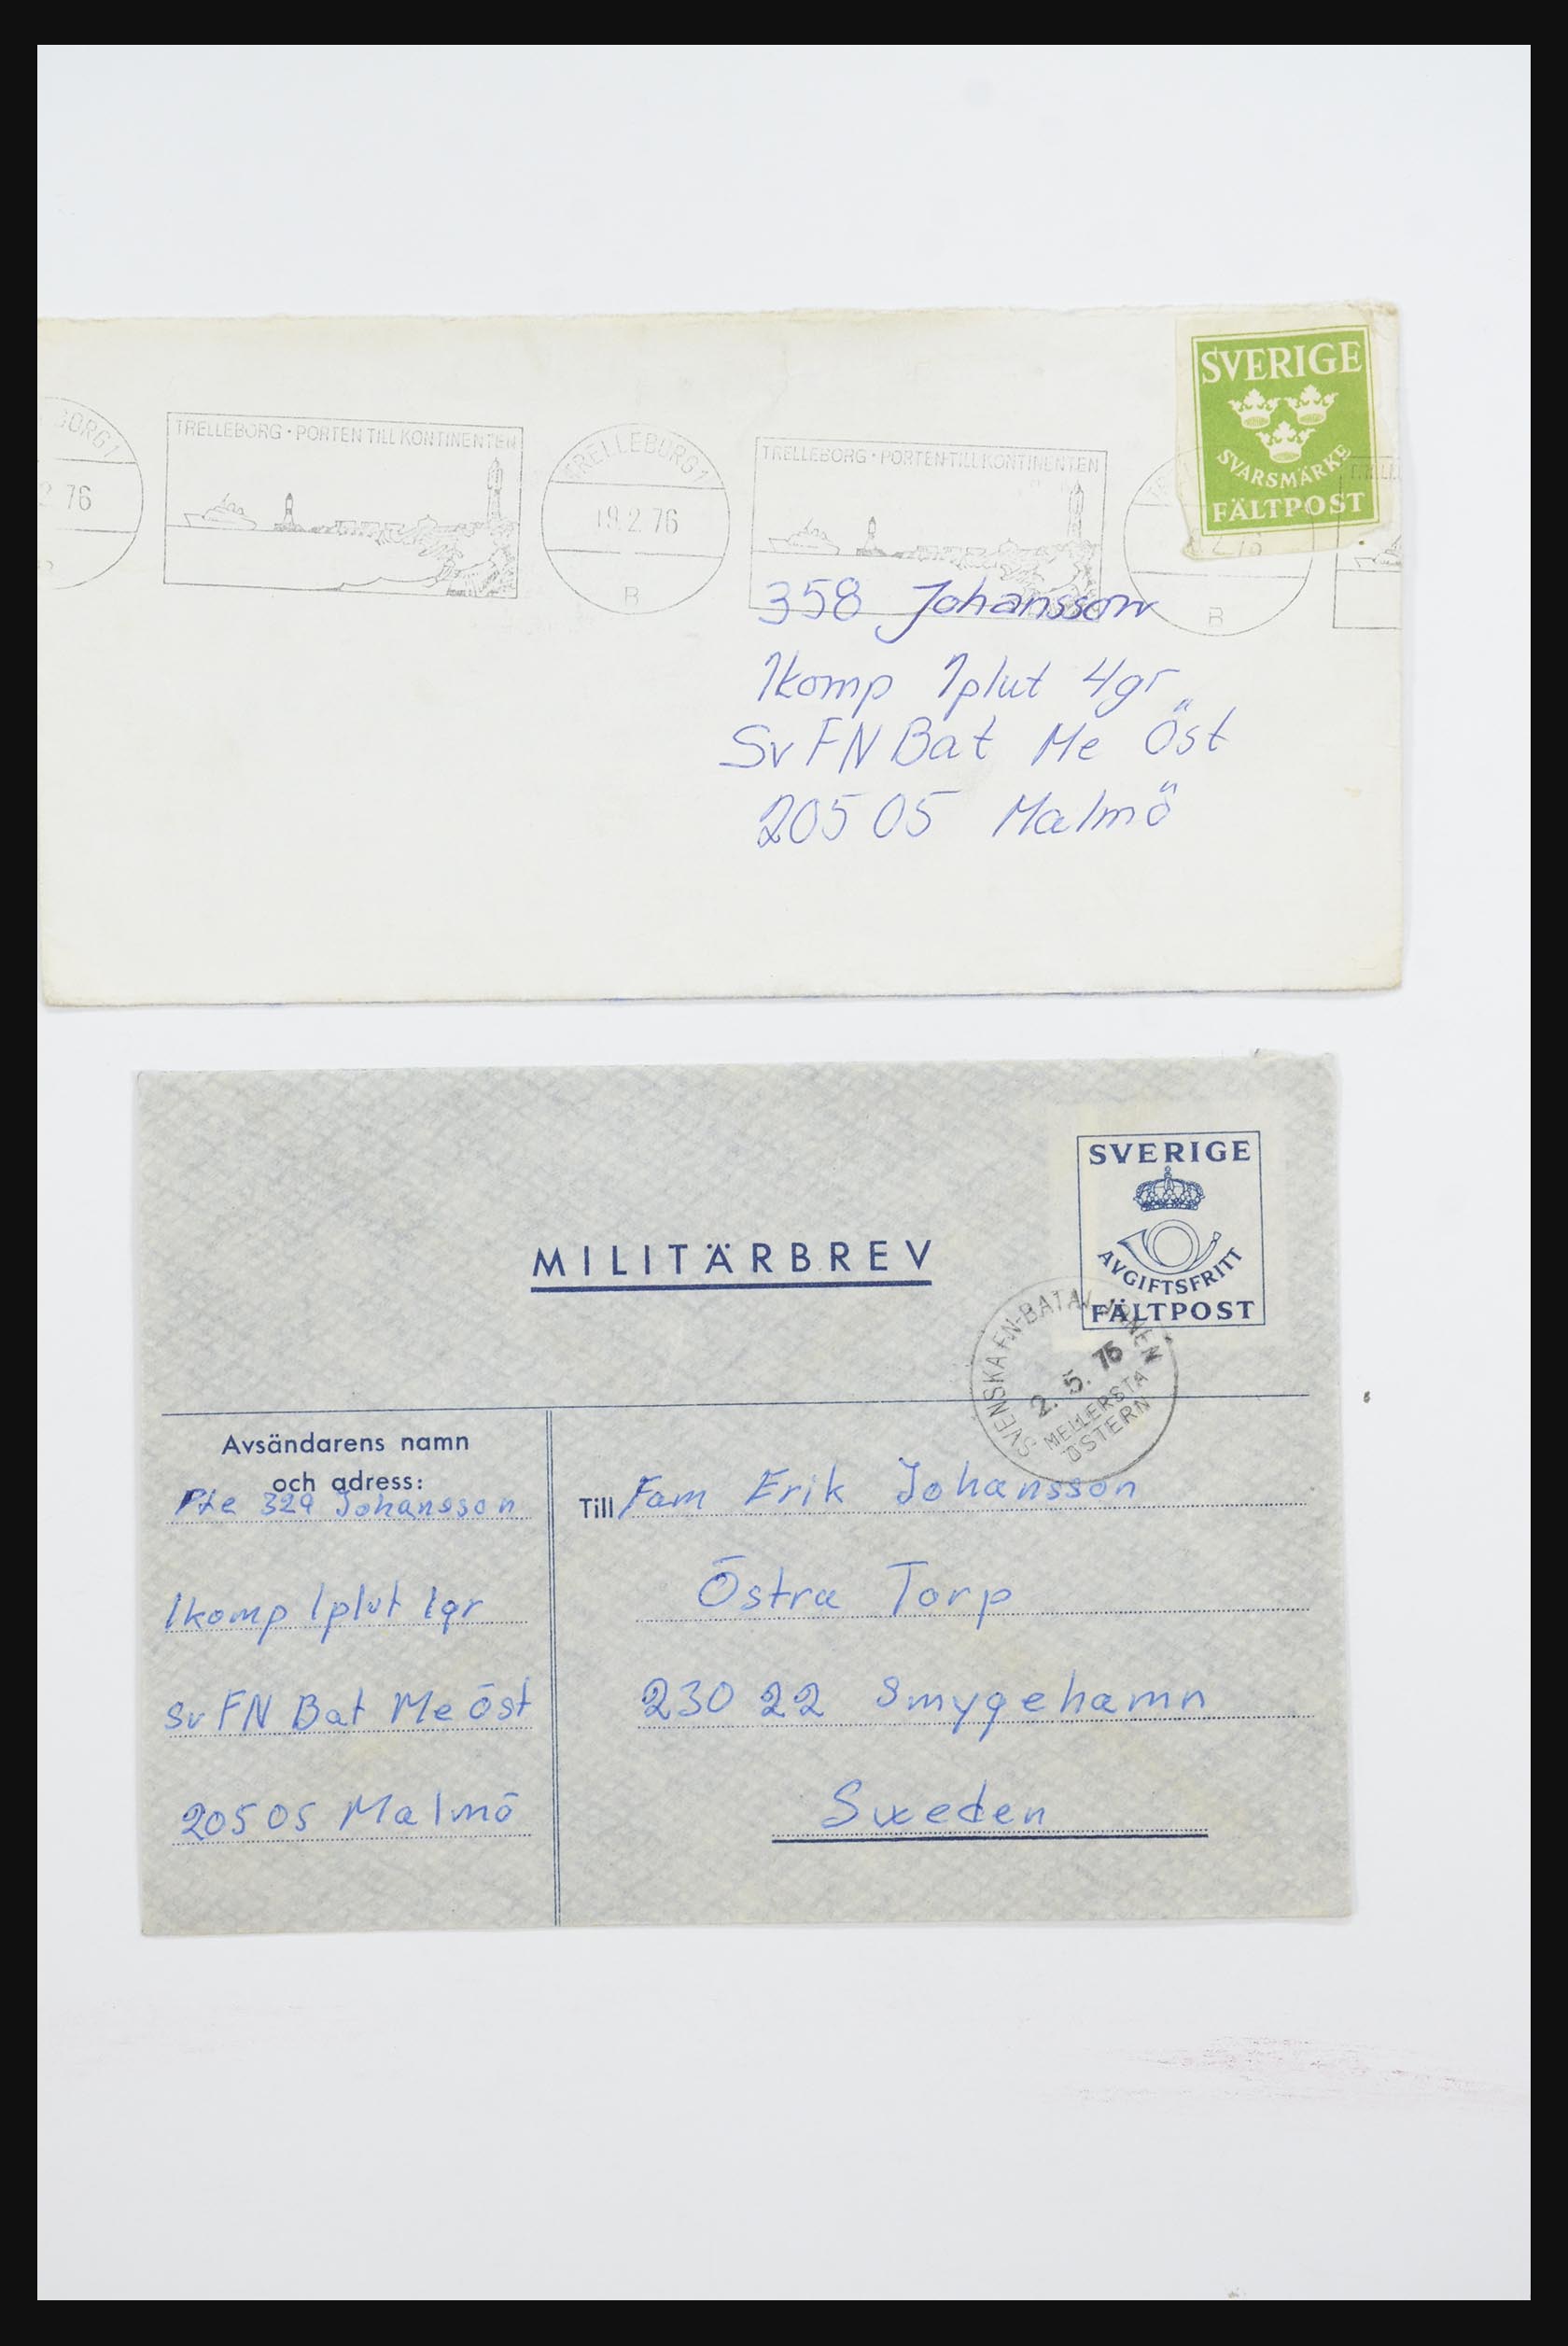 SVERIGE
SVARSMÄRKE
FÄLTPOST
BORG 1
2 76
TRELLEBORG · PORTEN TILL KONTINENTEN
TRELLEBORG 1
19.2.76
B
TRELLEBORG · PORTEN TILL KONTINENTEN
B
358 Johansson
1komp 1plut 4gr
Sv FN Bat Me Öst
205 05 Malmö
SVERIGE
AVGIFTSFRITT
FÄLTPOST
MILITÄRBREV
SVENSKA FN-BATALJONEN
2. 5. 76
MELLERSTA
ÖSTERN
Avsändarens namn
och adress:
Pte 329 Johansson
1komp 1plut 1gr
Sv FN Bat Me öst
205 05 Malmö
Till Fam Erik Johansson
Östra Torp
230 22 Smygehamn
Sweden